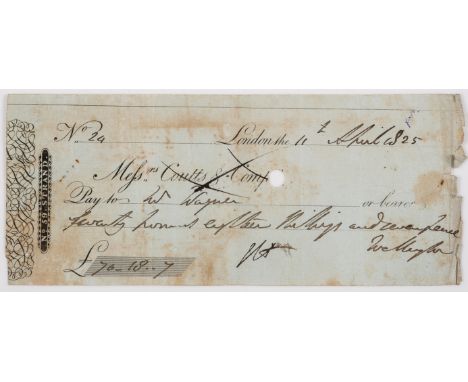 No 24 London the 11th April 1825
Messrs Coutts & Compy
No. 59, STRAND.
Pay to Mr Wagner or bearer
Seventy pounds eighteen shillings and sevenpence
£ 70-18-7 Wellington